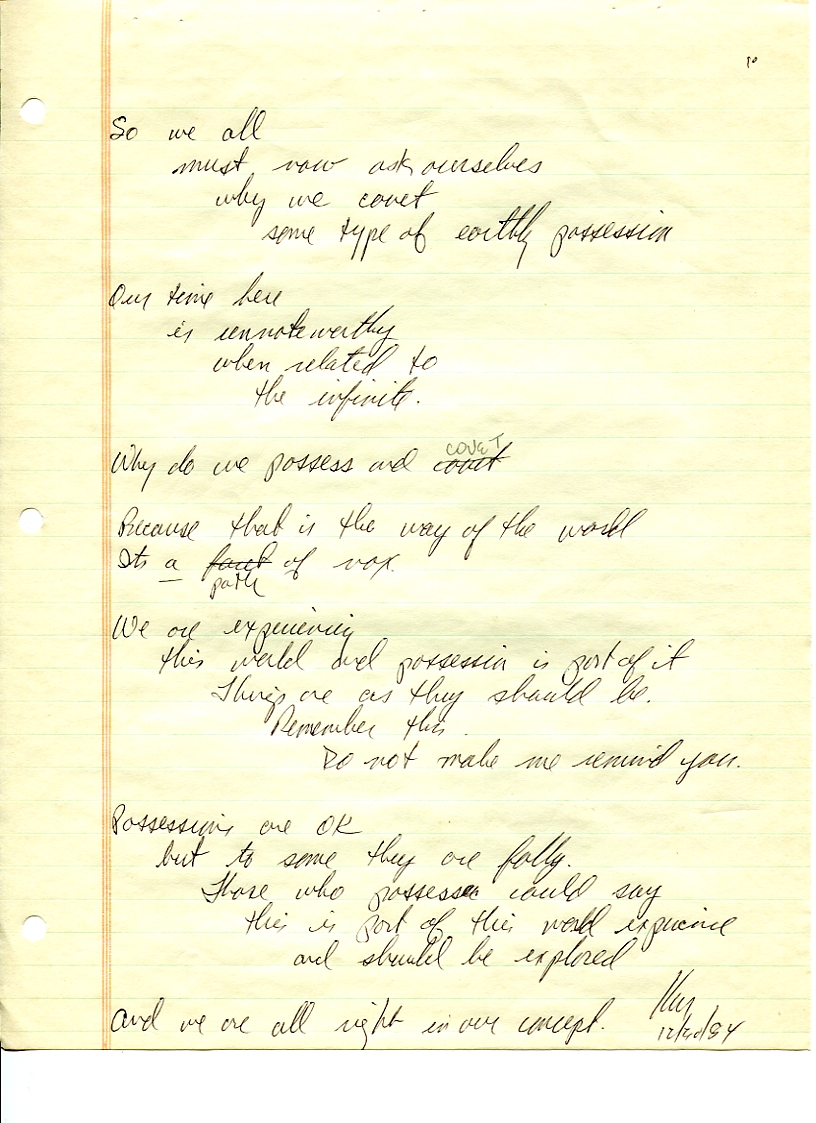 10
So we all
must now ask ourselves
why we covet
some type of earthly possession
Our time here
is unnoteworthy
when related to
the infinite.
COVET
Why do we possess and covet
Because that is the way of the world
Its a of vox.
path
We are experiencing
this world and possession is part of it
Things are as they should be.
Remember this.
Do not make me remind you.
Possessions are OK
but to some they are folly.
Those who possess could say
this is part of this world experience
and should be explored
and we are all right in our concept.
12/20/84